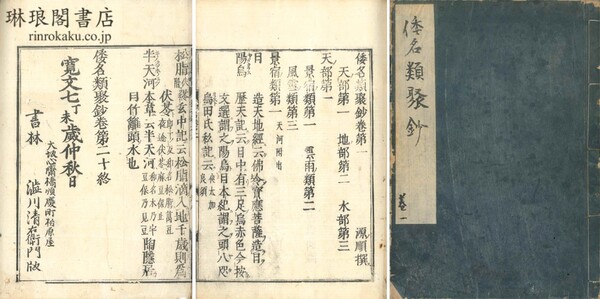 琳琅閣書店
rinrokaku.co.jp
倭名類聚鈔
巻一
倭名類聚鈔卷第一
源順撰
天部第一 地部第二 水部第三
天部第一
景宿類第一 雲雨類第二
風雪類第三
景宿類第一
日 造天地經云佛令寶應菩薩造日
陽烏 歷天記云日中有三足烏赤色今按
文選謂之陽烏日本紀謂之頭八咫
烏田氏私記云
松脂
玄中記云松脂淪入地千歳則爲
伏苓
半天河 本草云半天河
陶隱居
曰竹籬頭水也
倭名類聚鈔卷第二十終
寛文七丁未歳仲秋日
大坂心齋橋順慶町柏原屋
書林 澁川清右衛門版